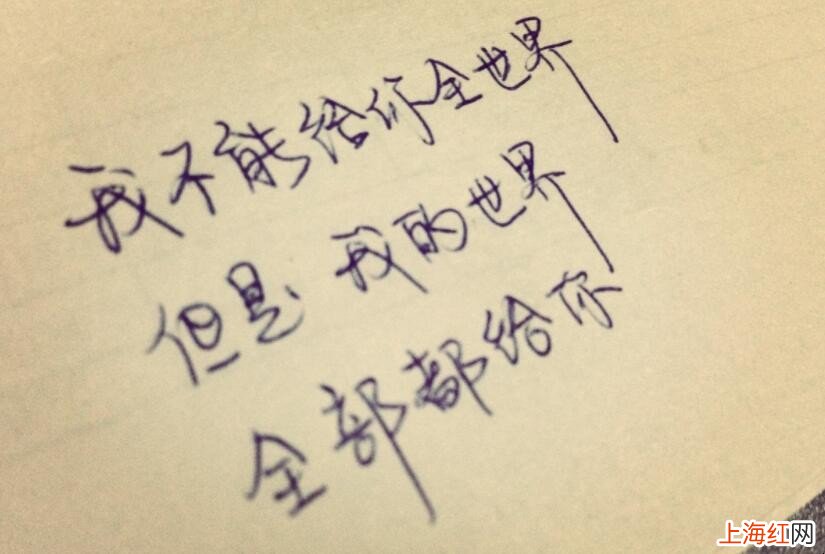 我不能给你全世界
但是 我的世界
全部都给你
上海红网